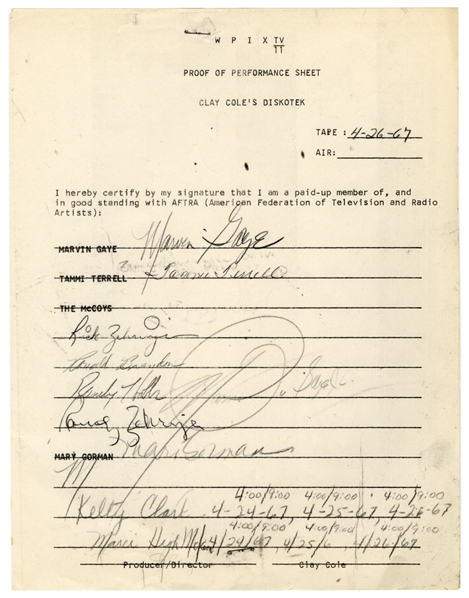 W P I X TV
11
PROOF OF PERFORMANCE SHEET
CLAY COLE'S DISKOTEK
TAPE: 4-26-67
AIR:
I hereby certify by my signature that I am a paid-up member of, and
in good standing with AFTRA (American Federation of Television and Radio
Artists):
MARVIN GAYE Marvin Gaye
TAMMI TERRELL Tammi Terrell
THE McCOYS
Rick Zehringer
Ronald Brandon
Randy Hobbs
Randy Zehringer
MARY GORMAN Mary Gorman
M
4:00/9:00 4:00/9:00 4:00/9:00
Clark 4-24-67, 4-25-67, 4-26-67
4:00/9:00 4:00/9:00 4:00/9:00
Marci 4/24/67, 4/25/6 4/26/67
Producer/Director Clay Cole